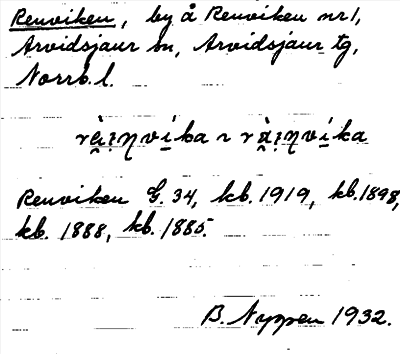 Renviken, by å Renviken nr 1,
Arvidsjaur sn, Arvidsjaur tg,
Norrb. l.
Renviken G. 34, kb. 1919, kb. 1898,
kb. 1888, kb. 1885.
B. Nyppen 1932.